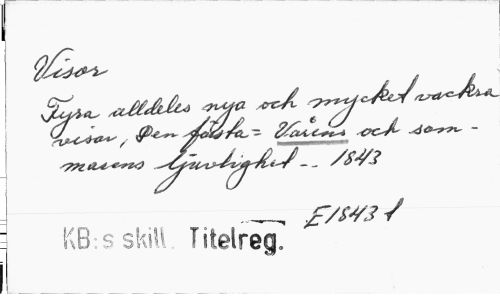 Visor
Fyra alldeles nya och mycket vackra
visor, Den första = Vårens och som-
marens ljuvlighet -- 1843
E 1843 t
KB:s skill. Titelreg.